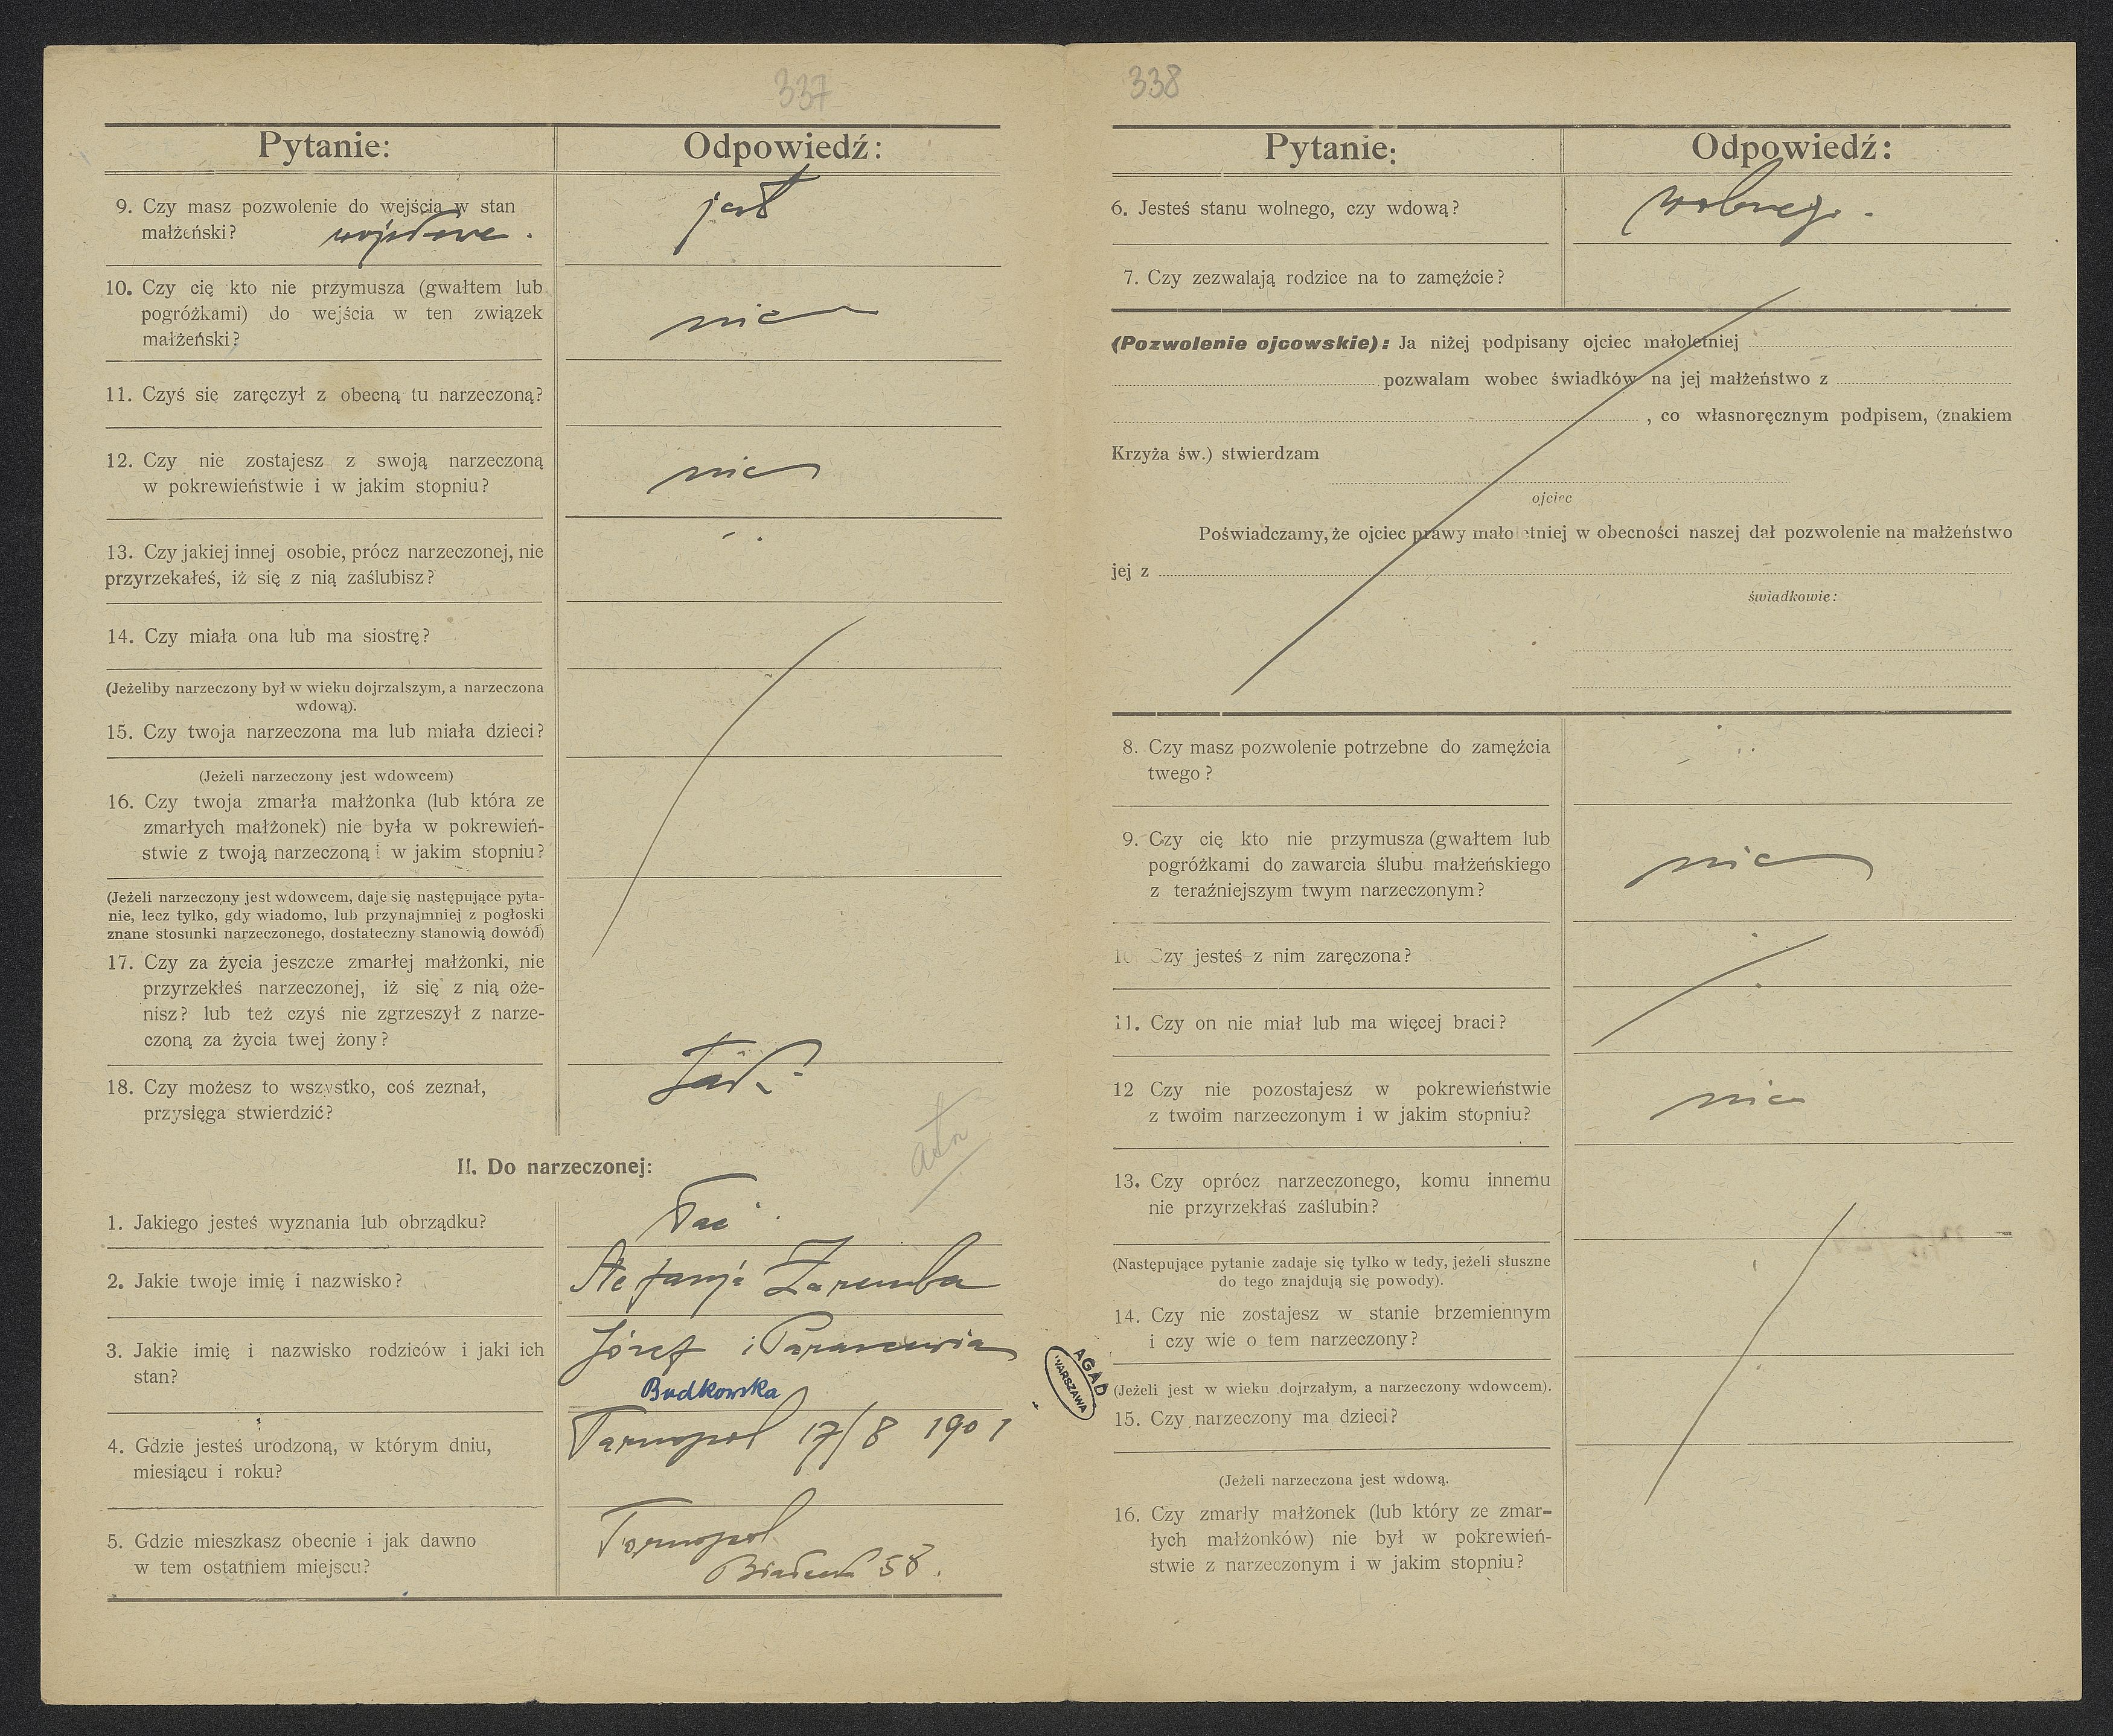 337
Pytanie:
Odpowiedź:
9. Czy masz pozwolenie do wejścia w stan
małżeński? wojskowe.
jest
10. Czy cię kto nie przymusza (gwałtem lub
pogróżkami) do wejścia w ten związek
małżeński?
nie
11. Czyś się zaręczył z obecną tu narzeczoną?
12. Czy nie zostajesz z swoją narzeczoną
w pokrewieństwie i w jakim stopniu?
nie
13. Czy jakiej innej osobie, prócz narzeczonej, nie
przyrzekałeś, iż się z nią zaślubisz?
14. Czy miała ona lub ma siostrę?
(Jeżeliby narzeczony był w wieku dojrzalszym, a narzeczona
wdową).
15. Czy twoja narzeczona ma lub miała dzieci?
(Jeżeli narzeczony jest wdowcem)
16. Czy twoja zmarła małżonka (lub która ze
zmarłych małżonek) nie była w pokrewień-
stwie z twoją narzeczoną i w jakim stopniu?
(Jeżeli narzeczony jest wdowcem, daje się następujące pyta-
nie, lecz tylko, gdy wiadomo, lub przynajmniej z pogłoski
znane stosunki narzeczonego, dostateczny stanowią dowód)
17. Czy za życia jeszcze zmarłej małżonki, nie
przyrzekłeś narzeczonej, iż się z nią oże-
nisz? lub też czyś nie zgrzeszył z narze-
czoną za życia twej żony?
18. Czy możesz to wszystko, coś zeznał,
przysięga stwierdzić?
tak
II. Do narzeczonej:
1. Jakiego jesteś wyznania lub obrządku?
łac
2. Jakie twoje imię i nazwisko?
Stefanja Zaremba
3. Jakie imię i nazwisko rodziców i jaki ich
stan?
Józef i Parascewia
Budkowska
4. Gdzie jesteś urodzoną, w którym dniu,
miesiącu i roku?
Tarnopol 17/8 1901
5. Gdzie mieszkasz obecnie i jak dawno
w tem ostatniem miejscu?
Tarnopol
58.
AGAD
WARSZAWA
338
Pytanie:
Odpowiedź:
6. Jesteś stanu wolnego, czy wdową?
wolnego.
7. Czy zezwalają rodzice na to zamęźcie?
(Pozwolenie ojcowskie): Ja niżej podpisany ojciec małoletniej
pozwalam wobec świadków na jej małżeństwo z
, co własnoręcznym podpisem, (znakiem
Krzyża św.) stwierdzam
ojciec
Poświadczamy, że ojciec prawy małoletniej w obecności naszej dał pozwolenie na małżeństwo
jej z
świadkowie:
8. Czy masz pozwolenie potrzebne do zamęźcia
twego?
9. Czy cię kto nie przymusza (gwałtem lub
pogróżkami do zawarcia ślubu małżeńskiego
z teraźniejszym twym narzeczonym?
nie
10. Czy jesteś z nim zaręczona?
11. Czy on nie miał lub ma więcej braci?
12 Czy nie pozostajesz w pokrewieństwie
z twoim narzeczonym i w jakim stopniu?
nie
13. Czy oprócz narzeczonego, komu innemu
nie przyrzekłaś zaślubin?
(Następujące pytanie zadaje się tylko w tedy, jeżeli słuszne
do tego znajdują się powody).
14. Czy nie zostajesz w stanie brzemiennym
i czy wie o tem narzeczony?
(Jeżeli jest w wieku dojrzałym, a narzeczony wdowcem).
15. Czy narzeczony ma dzieci?
(Jeżeli narzeczona jest wdową.
16. Czy zmarły małżonek (lub który ze zmar-
łych małżonków) nie był w pokrewień-
stwie z narzeczonym i w jakim stopniu?